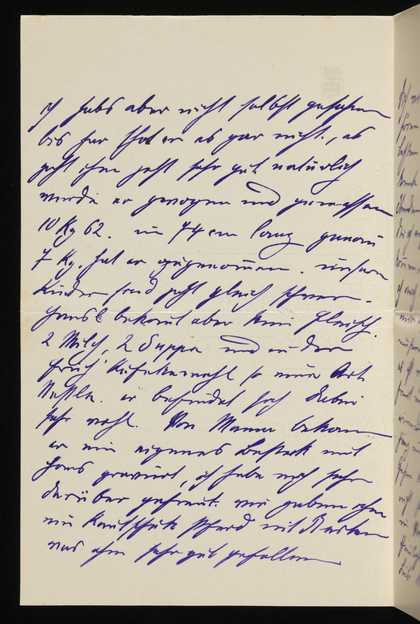 ich habs aber nicht selbst gesehen
bis her thut er es gar nicht, es
geht ihm jetzt sehr gut natürlich
wurde er gewogen und gemessen
10 Kg 62. und 74 cm lang genau
7 Kg. hat er zugenommen. unsere
Kinder sind jetzt gleich schwer.
Hansl bekomt aber kein Fleisch.
2 Milch, 2 Suppen und in der
früh Kufekemehl so eine Art
Nestle. er befindet sich dabei
sehr wohl. Von Mama bekam
er ein eigenes Besteck mit
Hans gravirt, ich habe mich sehr
darüber gefreut. wir gaben ihm
ein Kautschuk Pferd mit Reiter
was ihm sehr gut gefallen